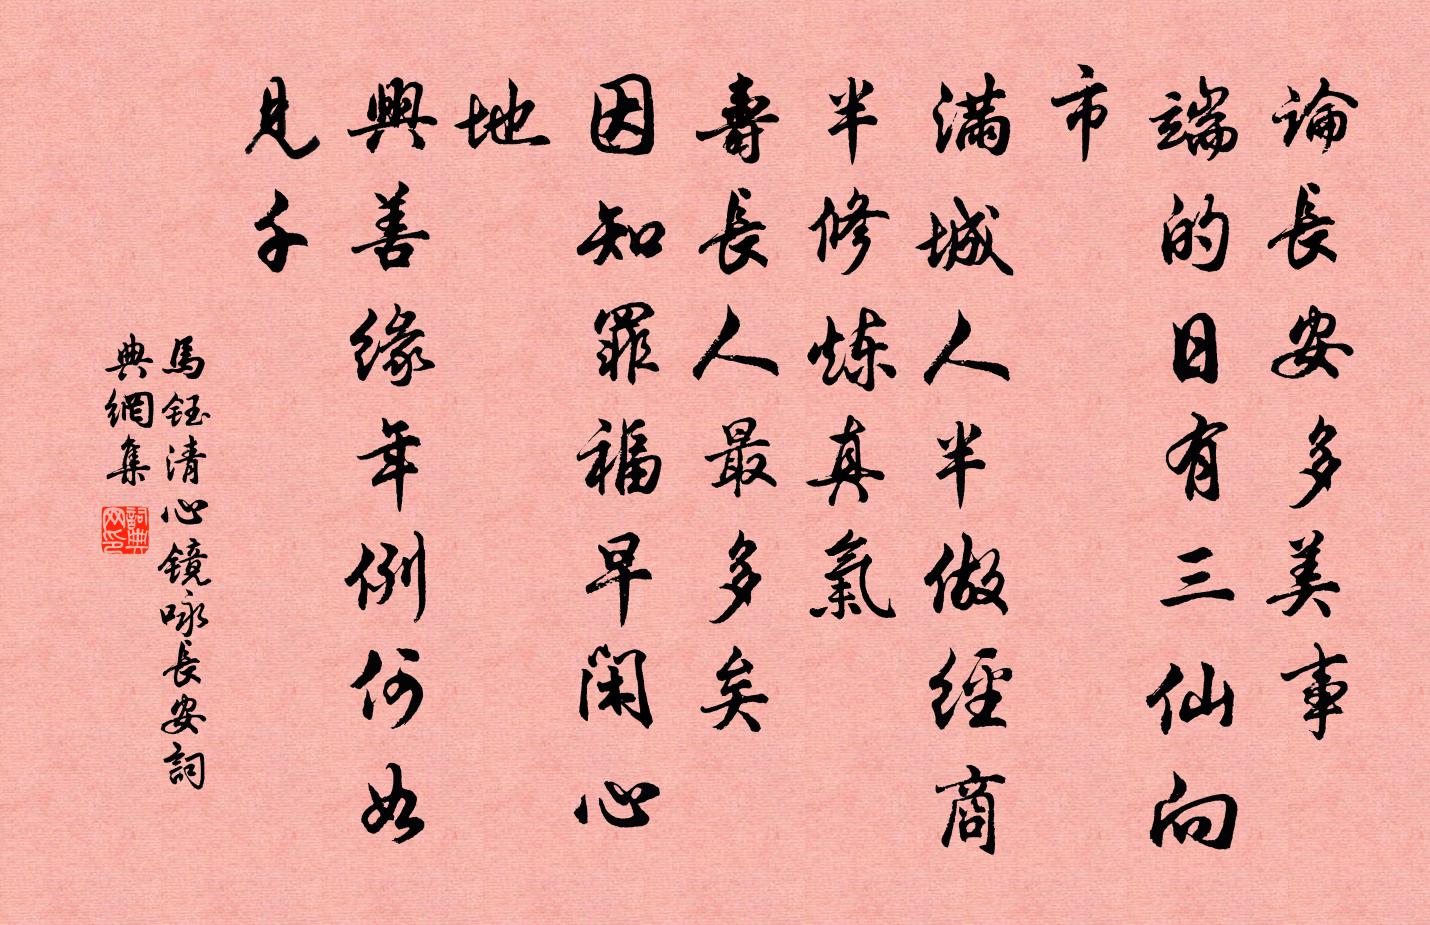 論長安多美事
端的日有三仙向
市
滿城人半做經商
半修煉真氣
壽長人最多矣
因知罪福早閑心
地
興善緣年例何如
見千
馬鈺清心鏡咏長安詞
典網集
詞典
网印